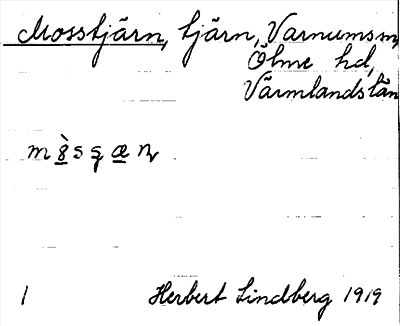 Mosstjärn, tjärn, Varnums sn,
Ölme hd,
Värmlands län
1 Herbert Lindberg 1919